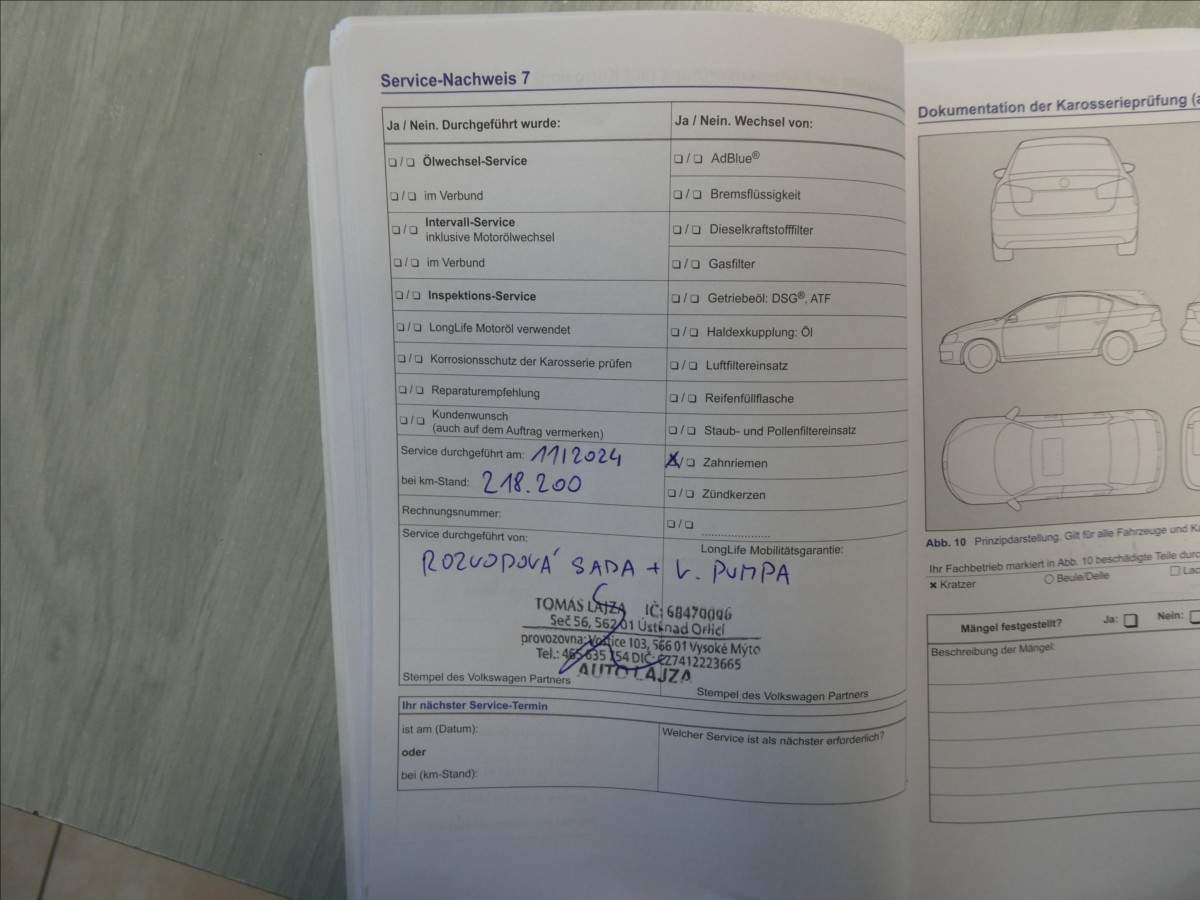 Service-Nachweis 7
Ja / Nein. Durchgeführt wurde:
❑ / ❑ Ölwechsel-Service
❑ / ❑ im Verbund
❑ / ❑ Intervall-Service
inklusive Motorölwechsel
❑ / ❑ im Verbund
❑ / ❑ Inspektions-Service
❑ / ❑ LongLife Motoröl verwendet
❑ / ❑ Korrosionsschutz der Karosserie prüfen
❑ / ❑ Reparaturempfehlung
❑ / ❑ Kundenwunsch
(auch auf dem Auftrag vermerken)
Service durchgeführt am: 11/2024
bei km-Stand: 218.200
Rechnungsnummer:
Service durchgeführt von:
Ja / Nein. Wechsel von:
❑ / ❑ AdBlue®
❑ / ❑ Bremsflüssigkeit
❑ / ❑ Dieselkraftstofffilter
❑ / ❑ Gasfilter
❑ / ❑ Getriebeöl: DSG®, ATF
❑ / ❑ Haldexkupplung: Öl
❑ / ❑ Luftfiltereinsatz
❑ / ❑ Reifenfüllflasche
❑ / ❑ Staub- und Pollenfiltereinsatz
X / ❑ Zahnriemen
❑ / ❑ Zündkerzen
❑ / ❑ ......................
LongLife Mobilitätsgarantie:
ROZVODOVÁ SADA + V. PUMPA
TOMÁŠ LAJZA IČ: 68470096
Seč 56, 562 01 Ústí nad Orlicí
provozovna: Vostice 103, 566 01 Vysoké Mýto
Tel.: 465 635 154 DIČ: CZ7412223665
AUTO LAJZA
Stempel des Volkswagen Partners
Stempel des Volkswagen Partners
Ihr nächster Service-Termin
ist am (Datum):
oder
bei (km-Stand):
Welcher Service ist als nächster erforderlich?
Dokumentation der Karosserieprüfung (a
Abb. 10 Prinzipdarstellung. Gilt für alle Fahrzeuge und K
Ihr Fachbetrieb markiert in Abb. 10 beschädigte Teile durc
✖ Kratzer ○ Beule/Delle ☐ Lac
Mängel festgestellt? Ja: ❑ Nein: ❑
Beschreibung der Mängel: